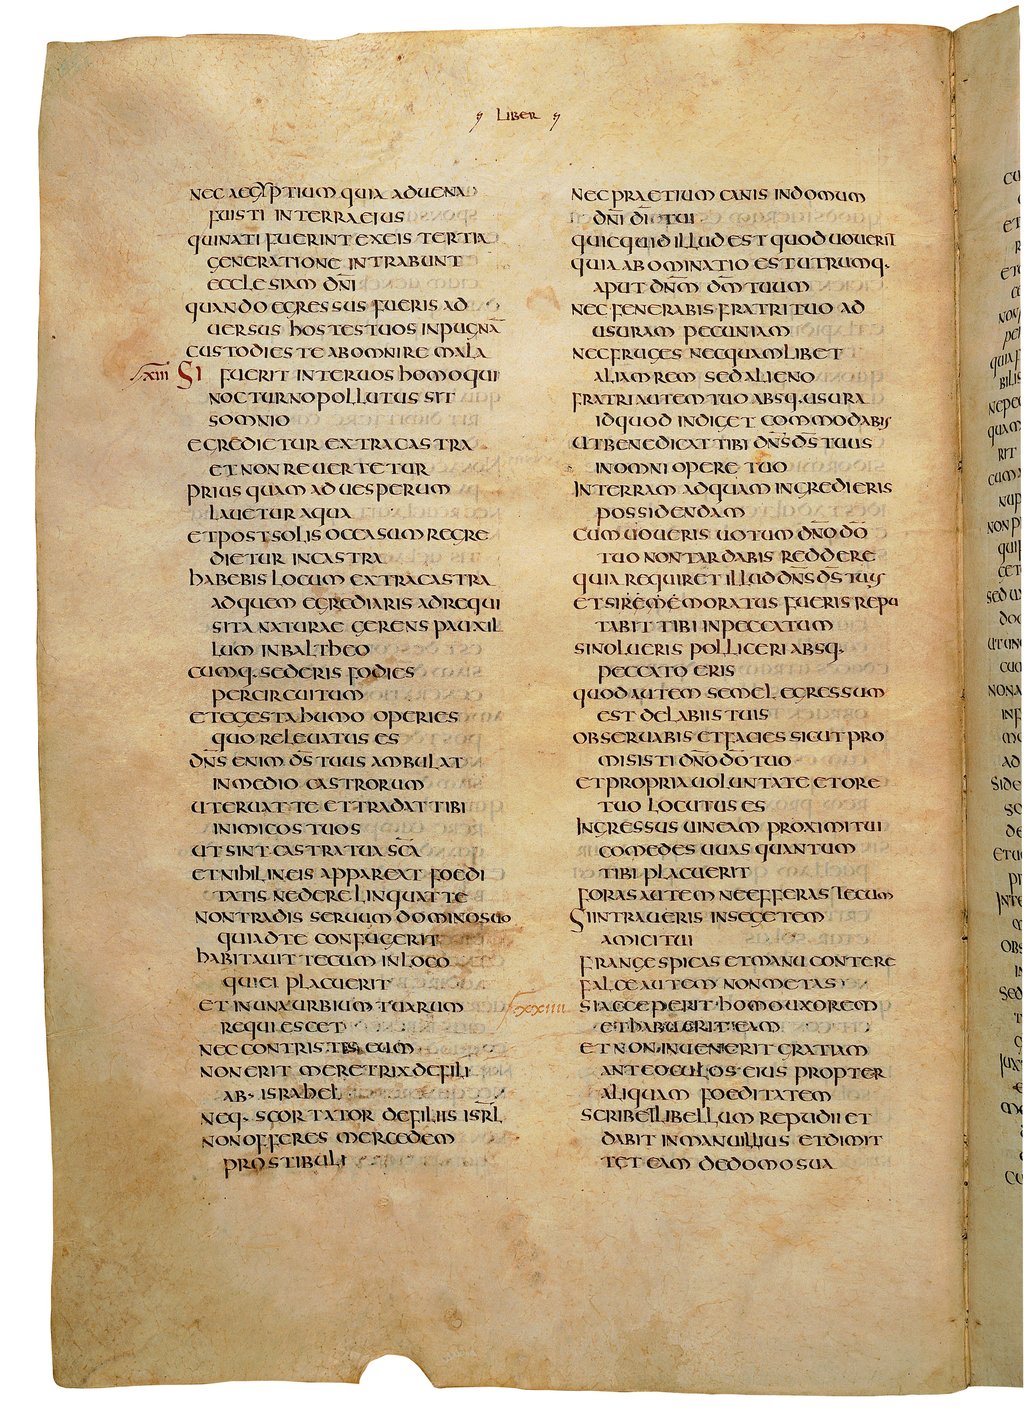 LIBER
NEC AEGYPTIUM QUIA ADUENA
FUISTI IN TERRA EIUS
QUI NATI FUERINT EX EIS TERTIA
GENERATIONE INTRABUNT
ECCLESIAM DN̄I
QUANDO EGRESSUS FUERIS AD
UERSUS HOSTES TUOS IN PUGNĀ
CUSTODIES TE AB OMNI RE MALA
LXIII SI FUERIT INTER UOS HOMO QUI
NOCTURNO POLLUTUS SIT
SOMNIO
EGREDIETUR EXTRA CASTRA
ET NON REUERTETUR
PRIUS QUAM AD UESPERUM
LAUETUR AQUA
ET POST SOLIS OCCASUM REGRE
DIETUR IN CASTRA
HABEBIS LOCUM EXTRA CASTRA
AD QUEM EGREDIARIS AD REQUI
SITA NATURAE GERENS PAUXIL
LUM IN BALTHEO
CUMQ· SEDERIS FODIES
PER CIRCUITUM
ET EGESTA HUMO OPERIES
QUO RELEUATUS ES
DN̄S ENIM D̄S TUUS AMBULAT
IN MEDIO CASTRORUM
UT ERUAT TE ET TRADAT TIBI
INIMICOS TUOS
UT SINT CASTRA TUA SC̄A
ET NIHIL IN EIS APPAREAT FOEDI
TATIS NE DERELINQUAT TE
NON TRADIS SERUUM DOMINO SUO
QUI AD TE CONFUGERIT
HABITAUIT TECUM IN LOCO
QUI EI PLACUERIT
ET IN UNA URBIUM TUARUM
REQUIESCET
NEC CONTRISTES EUM
NON ERIT MERETRIX DE FILI
AB· ISRAHEL
NEQ· SCORTATOR DE FILIIS ISRL̄
NON OFFERES MERCEDEM
PROSTIBULI
NEC PRAETIUM CANIS IN DOMUM
DN̄I DĪ TUI
QUICQUID ILLUD EST QUOD UOUERIT
QUIA ABOMINATIO EST UTRUMQ·
APUT DN̄M DM̄ TUUM
NEC FENERABIS FRATRI TUO AD
USURAM PECUNIAM
NEC FRUGES NEC QUAMLIBET
ALIAM REM SED ALIENO
FRATRI AUTEM TUO ABSQ· USURA
ID QUOD INDIGET COMMODABIS
UT BENEDICAT TIBI DN̄S D̄S TUUS
IN OMNI OPERE TUO
IN TERRAM AD QUAM INGREDIERIS
POSSIDENDAM
CUM UOUERIS UOTUM DN̄O DŌ
TUO NON TARDABIS REDDERE
QUIA REQUIRET ILLUD DN̄S D̄S TUUS
ET SI REMEMORATUS FUERIS REPU
TABIT TIBI IN PECCATUM
SI NOLUERIS POLLICERI ABSQ·
PECCATO ERIS
QUOD AUTEM SEMEL EGRESSUM
EST DE LABIIS TUIS
OBSERUABIS ET FACIES SICUT PRO
MISISTI DN̄O DŌ TUO
ET PROPRIA UOLUNTATE ET ORE
TUO LOCUTUS ES
INGRESSUS UINEAM PROXIMI TUI
COMEDES UUAS QUANTUM
TIBI PLACUERIT
FORAS AUTEM NE EFFERAS TECUM
SI INTRAUERIS IN SEGETEM
AMICI TUI
FRANGES PICAS ET MANU CONTERE
FALCE AUTEM NON METAS
LXXIIII SI ACCEPERIT HOMO UXOREM
ET HABUERIT EAM
ET NON INUENERIT GRATIAM
ANTE OCULOS EIUS PROPTER
ALIQUAM FOEDITATEM
SCRIBET LIBELLUM REPUDII ET
DABIT IN MANU ILLIUS ET DIMIT
TET EAM DE DOMO SUA